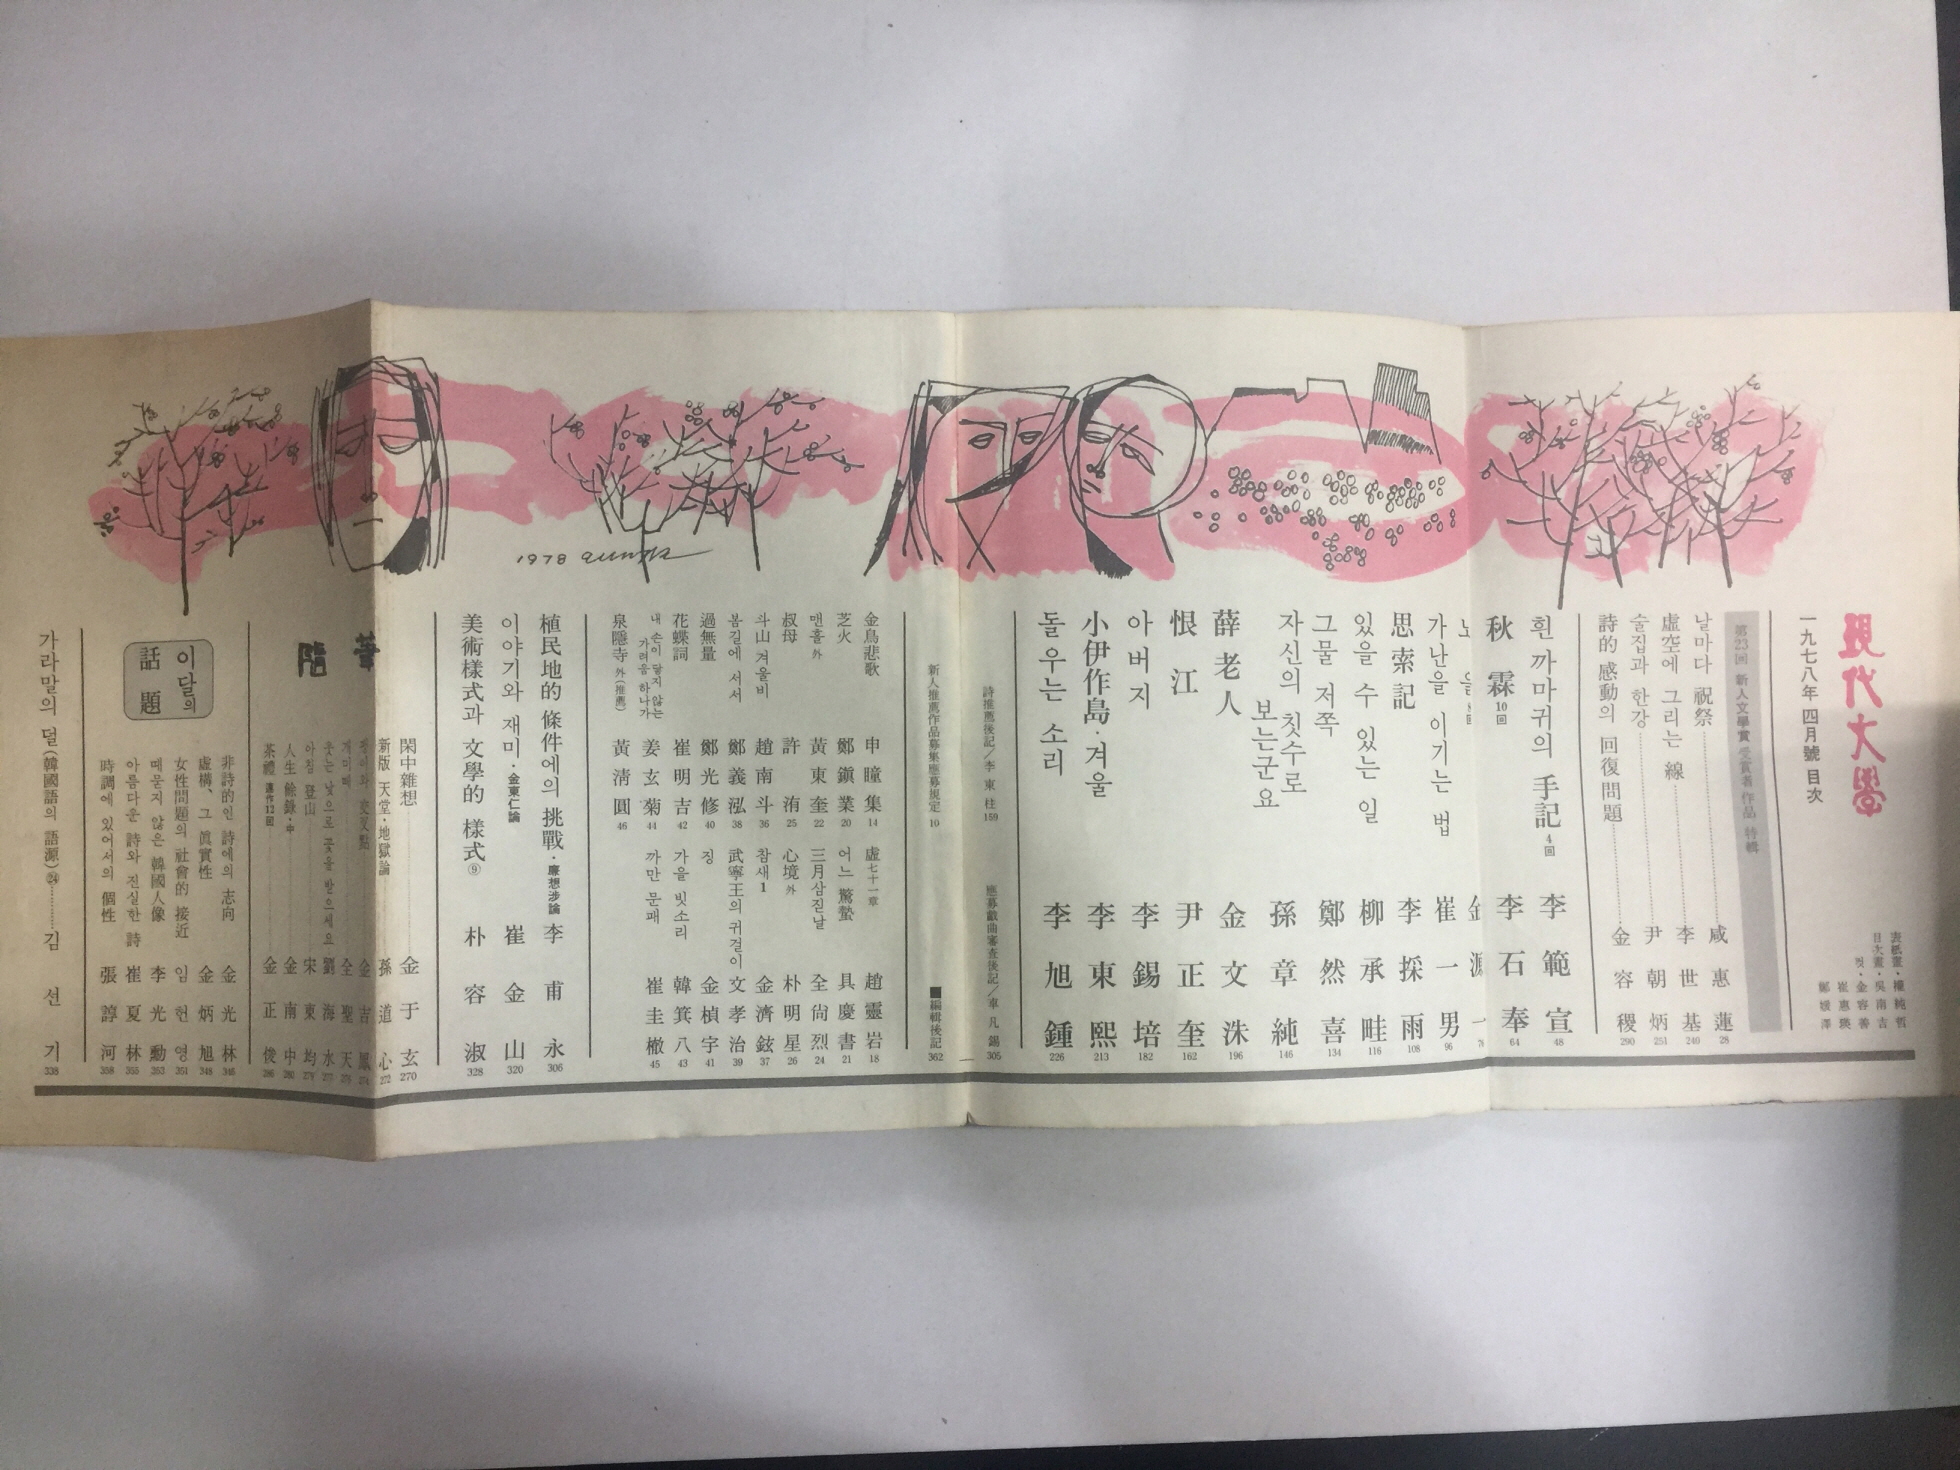 現代文學
一九七八年 四月號 目次
表紙畫・權純哲
目次畫・吳南吉
컷・金容善
崔惠瑛
鄭媛澤
第23回 新人文學賞 受賞者 作品 特輯
날마다 祝祭 咸惠蓮 28
虛空에 그리는 線 李世基 240
술집과 한강 尹朝炳 251
詩的 感動의 回復問題 金容稷 290
흰 까마귀의 手記 4回 李範宣 48
秋霖 10回 李石奉 64
노을 8回 金源一 78
가난을 이기는 법 崔一男 96
思索記 李採雨 108
있을 수 있는 일 柳承畦 116
그물 저쪽 鄭然喜 134
자신의 칫수로 보는군요 孫章純 146
薛老人 金文洙 196
恨江 尹正奎 162
아버지 李錫培 182
小伊作島・겨울 李東熙 213
돌우는 소리 李旭鍾 226
詩推薦後記／李東柱 159
應募戱曲審査後記／車凡錫 305
新人推薦作品募集應募規定 10
■編輯後記 362
金烏悲歌 申瞳集 14
虛七十一章 趙靈岩 18
芝火 鄭鎭業 20
어느 驚蟄 具慶書 21
맨홀 外 黃東奎 22
三月삼짇날 全尙烈 24
叔母 許洧 25
心境 外 朴明星 26
斗山 겨울비 趙南斗 36
참새 1 金濟鉉 37
봄길에 서서 鄭義泓 38
武寧王의 귀걸이 文孝治 39
過無量 鄭光修 40
징 金楨宇 41
花蝶詞 崔明吉 42
가을 빗소리 韓箕八 43
내 손이 닿지 않는 가려움 하나가 姜玄菊 44
까만 문패 崔圭橵 45
泉隱寺 外(推薦) 黃淸圓 46
植民地的 條件에의 挑戰・廉想涉論 李甫永 306
이야기와 재미・金東仁論 崔金山 320
美術樣式과 文學的 樣式⑨ 朴容淑 328
隨筆
閑中雜想 金于玄 270
新版 天堂・地獄論 孫道心 272
金吉鳳
개미떼 全聖天
웃는 낯으로 꽃을 받으세요 劉海水
아침 登山 宋東均
人生 餘錄・中 金南中 280
茶禮 連作12回 金正俊 286
이달의 話題
非詩的인 詩에의 志向 金光林 346
虛構、그 眞實性 金炳旭 348
女性問題의 社會的 接近 임헌영 351
때묻지 않은 韓國人像 李光勳 353
아름다운 詩와 진실한 詩 崔林夏 355
時調에 있어서의 個性 張諄河 358
가라말의 덜(韓國語의 語源)㉔ 김선기 338
1978